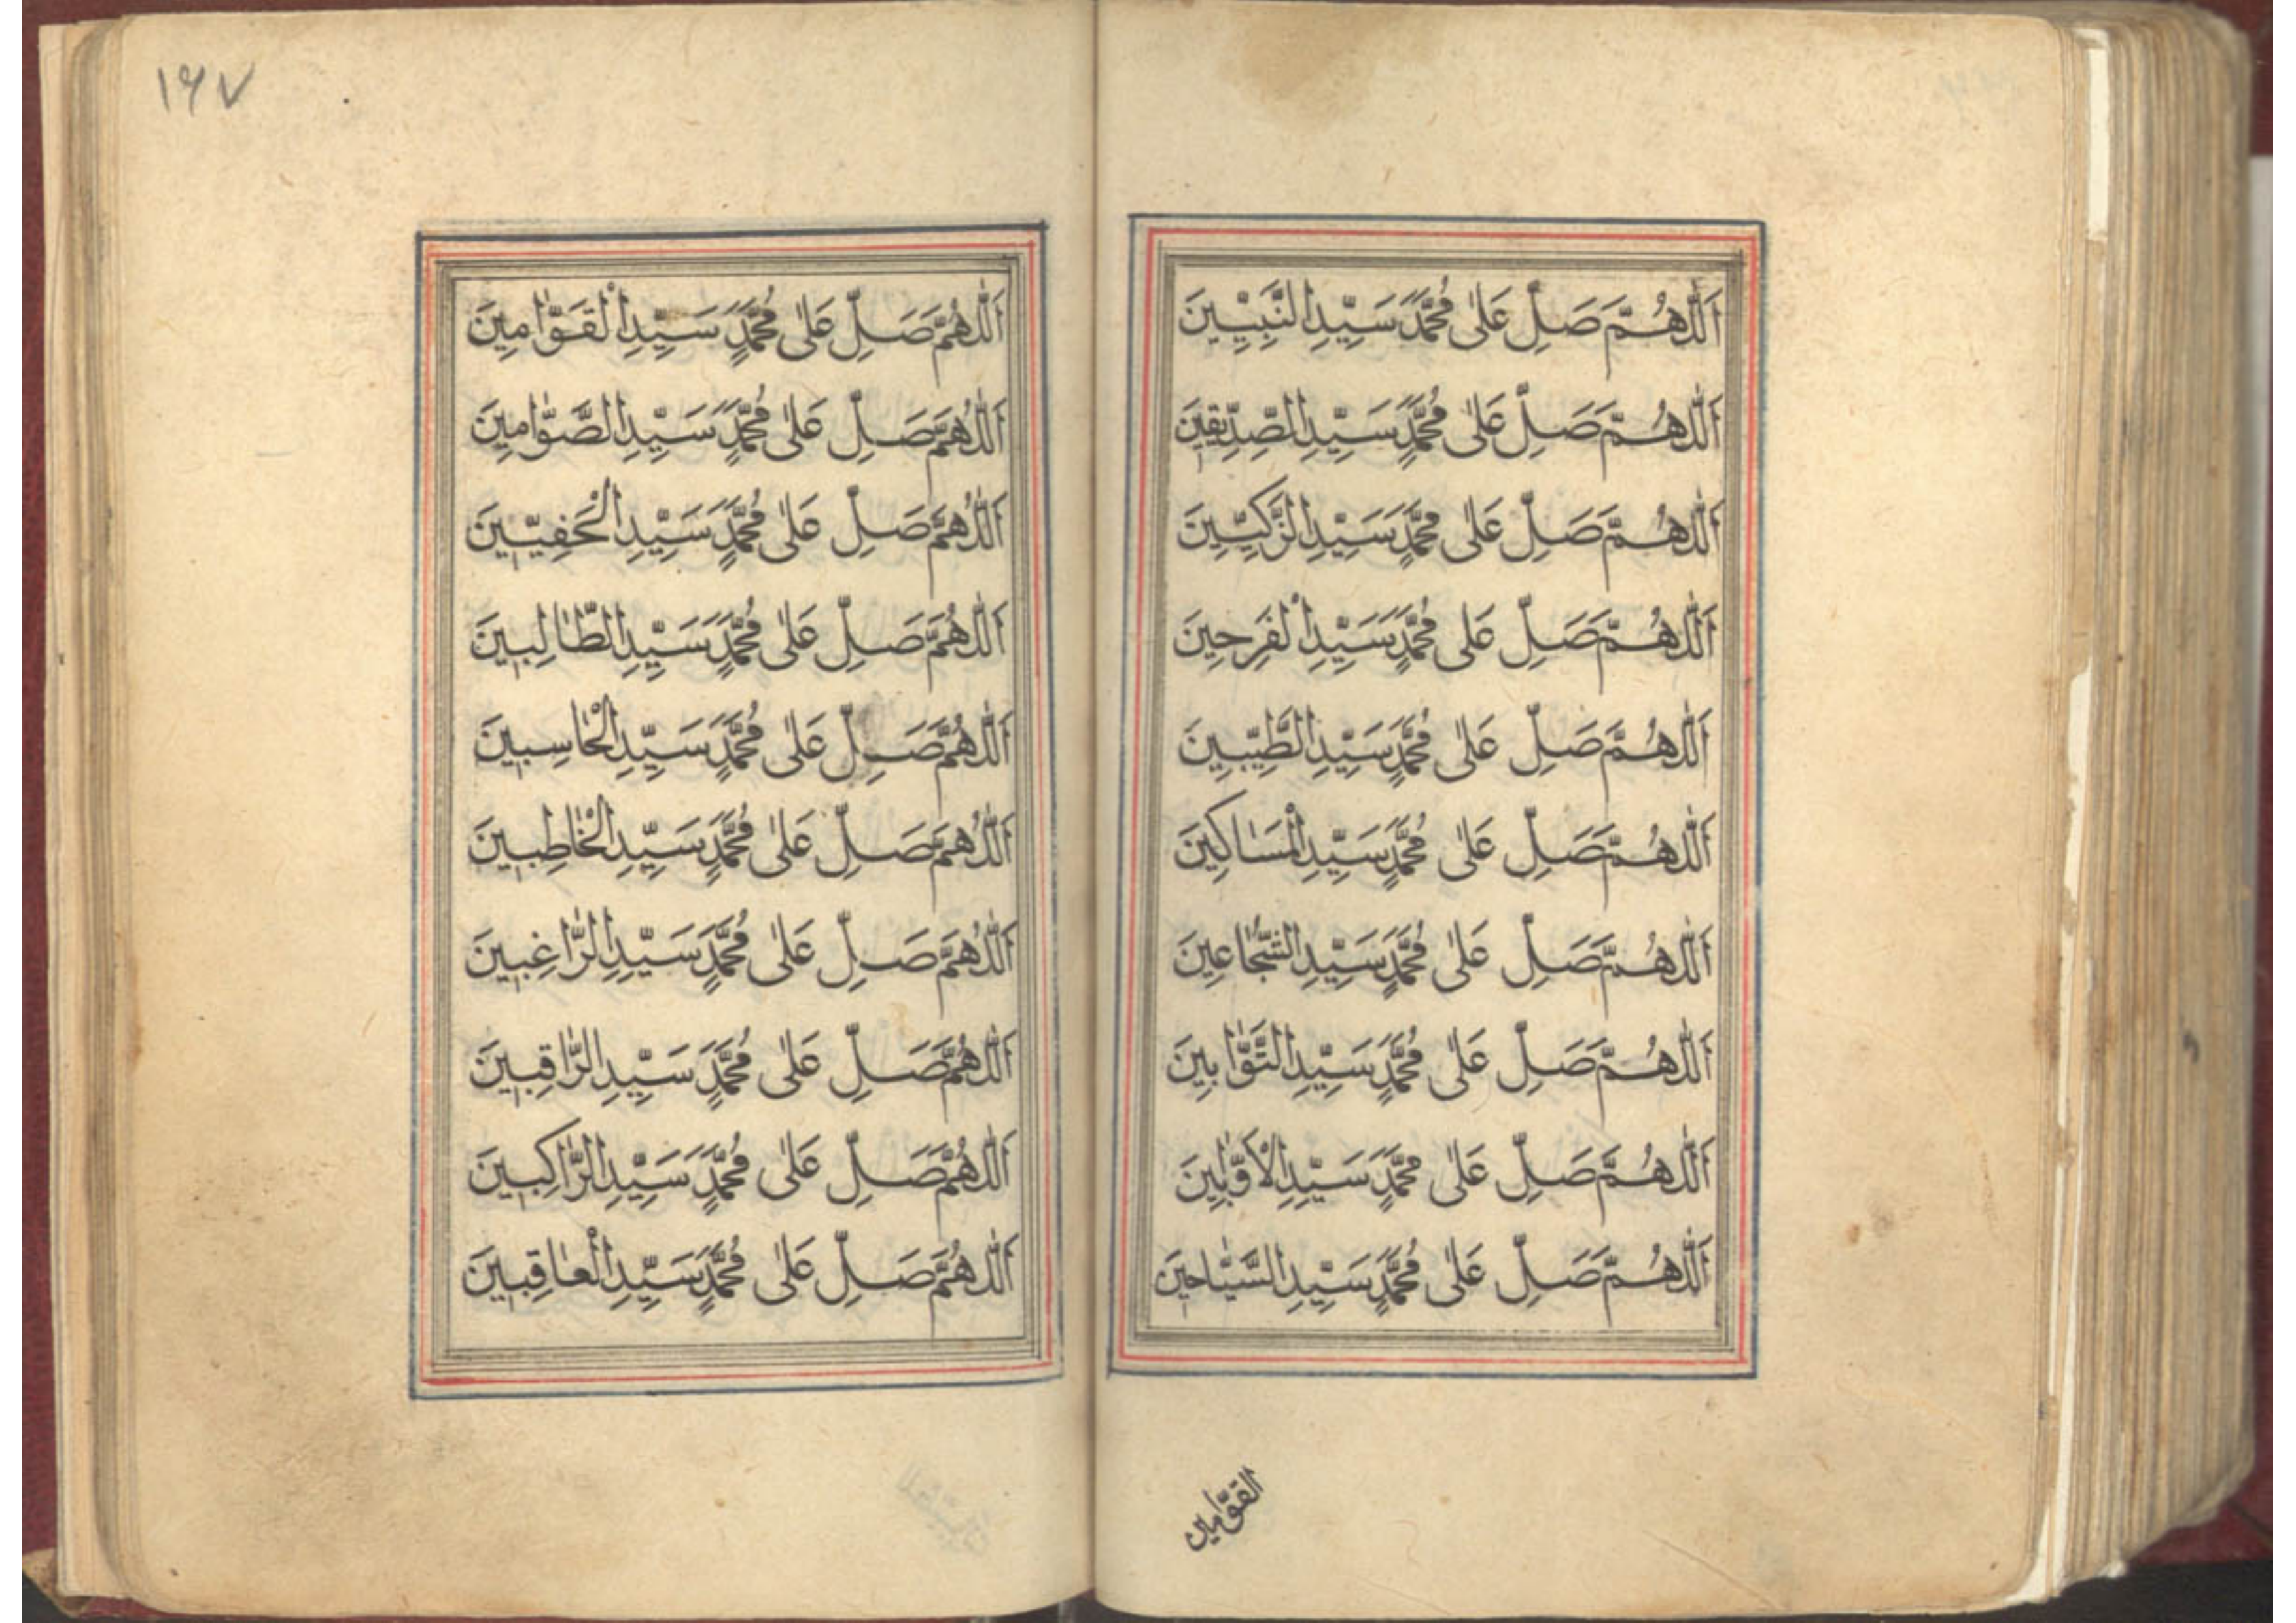 اَللّٰهُمَّ صَلِّ عَلٰى مُحَمَّدٍ سَيِّدِ النَّبِيِّينَ
اَللّٰهُمَّ صَلِّ عَلٰى مُحَمَّدٍ سَيِّدِ الصِّدِّيقِينَ
اَللّٰهُمَّ صَلِّ عَلٰى مُحَمَّدٍ سَيِّدِ الزَّكِيِّينَ
اَللّٰهُمَّ صَلِّ عَلٰى مُحَمَّدٍ سَيِّدِ الْفَرِحِينَ
اَللّٰهُمَّ صَلِّ عَلٰى مُحَمَّدٍ سَيِّدِ الطَّيِّبِينَ
اَللّٰهُمَّ صَلِّ عَلٰى مُحَمَّدٍ سَيِّدِ الْمَسَاكِينَ
اَللّٰهُمَّ صَلِّ عَلٰى مُحَمَّدٍ سَيِّدِ الشُّجَّاعِينَ
اَللّٰهُمَّ صَلِّ عَلٰى مُحَمَّدٍ سَيِّدِ التَّوَّابِينَ
اَللّٰهُمَّ صَلِّ عَلٰى مُحَمَّدٍ سَيِّدِ الْأَوَّابِينَ
اَللّٰهُمَّ صَلِّ عَلٰى مُحَمَّدٍ سَيِّدِ السَّيَّاحِينَ
القوّامين
١٦٧
اَللّٰهُمَّ صَلِّ عَلٰى مُحَمَّدٍ سَيِّدِ الْقَوَّامِينَ
اَللّٰهُمَّ صَلِّ عَلٰى مُحَمَّدٍ سَيِّدِ الصَّوَّامِينَ
اَللّٰهُمَّ صَلِّ عَلٰى مُحَمَّدٍ سَيِّدِ الْحَفِيّينَ
اَللّٰهُمَّ صَلِّ عَلٰى مُحَمَّدٍ سَيِّدِ الطَّالِبِينَ
اَللّٰهُمَّ صَلِّ عَلٰى مُحَمَّدٍ سَيِّدِ الْحَاسِبِينَ
اَللّٰهُمَّ صَلِّ عَلٰى مُحَمَّدٍ سَيِّدِ الْخَاطِبِينَ
اَللّٰهُمَّ صَلِّ عَلٰى مُحَمَّدٍ سَيِّدِ الرَّاغِبِينَ
اَللّٰهُمَّ صَلِّ عَلٰى مُحَمَّدٍ سَيِّدِ الرَّاقِبِينَ
اَللّٰهُمَّ صَلِّ عَلٰى مُحَمَّدٍ سَيِّدِ الرَّاكِبِينَ
اَللّٰهُمَّ صَلِّ عَلٰى مُحَمَّدٍ سَيِّدِ الْعَاقِبِينَ